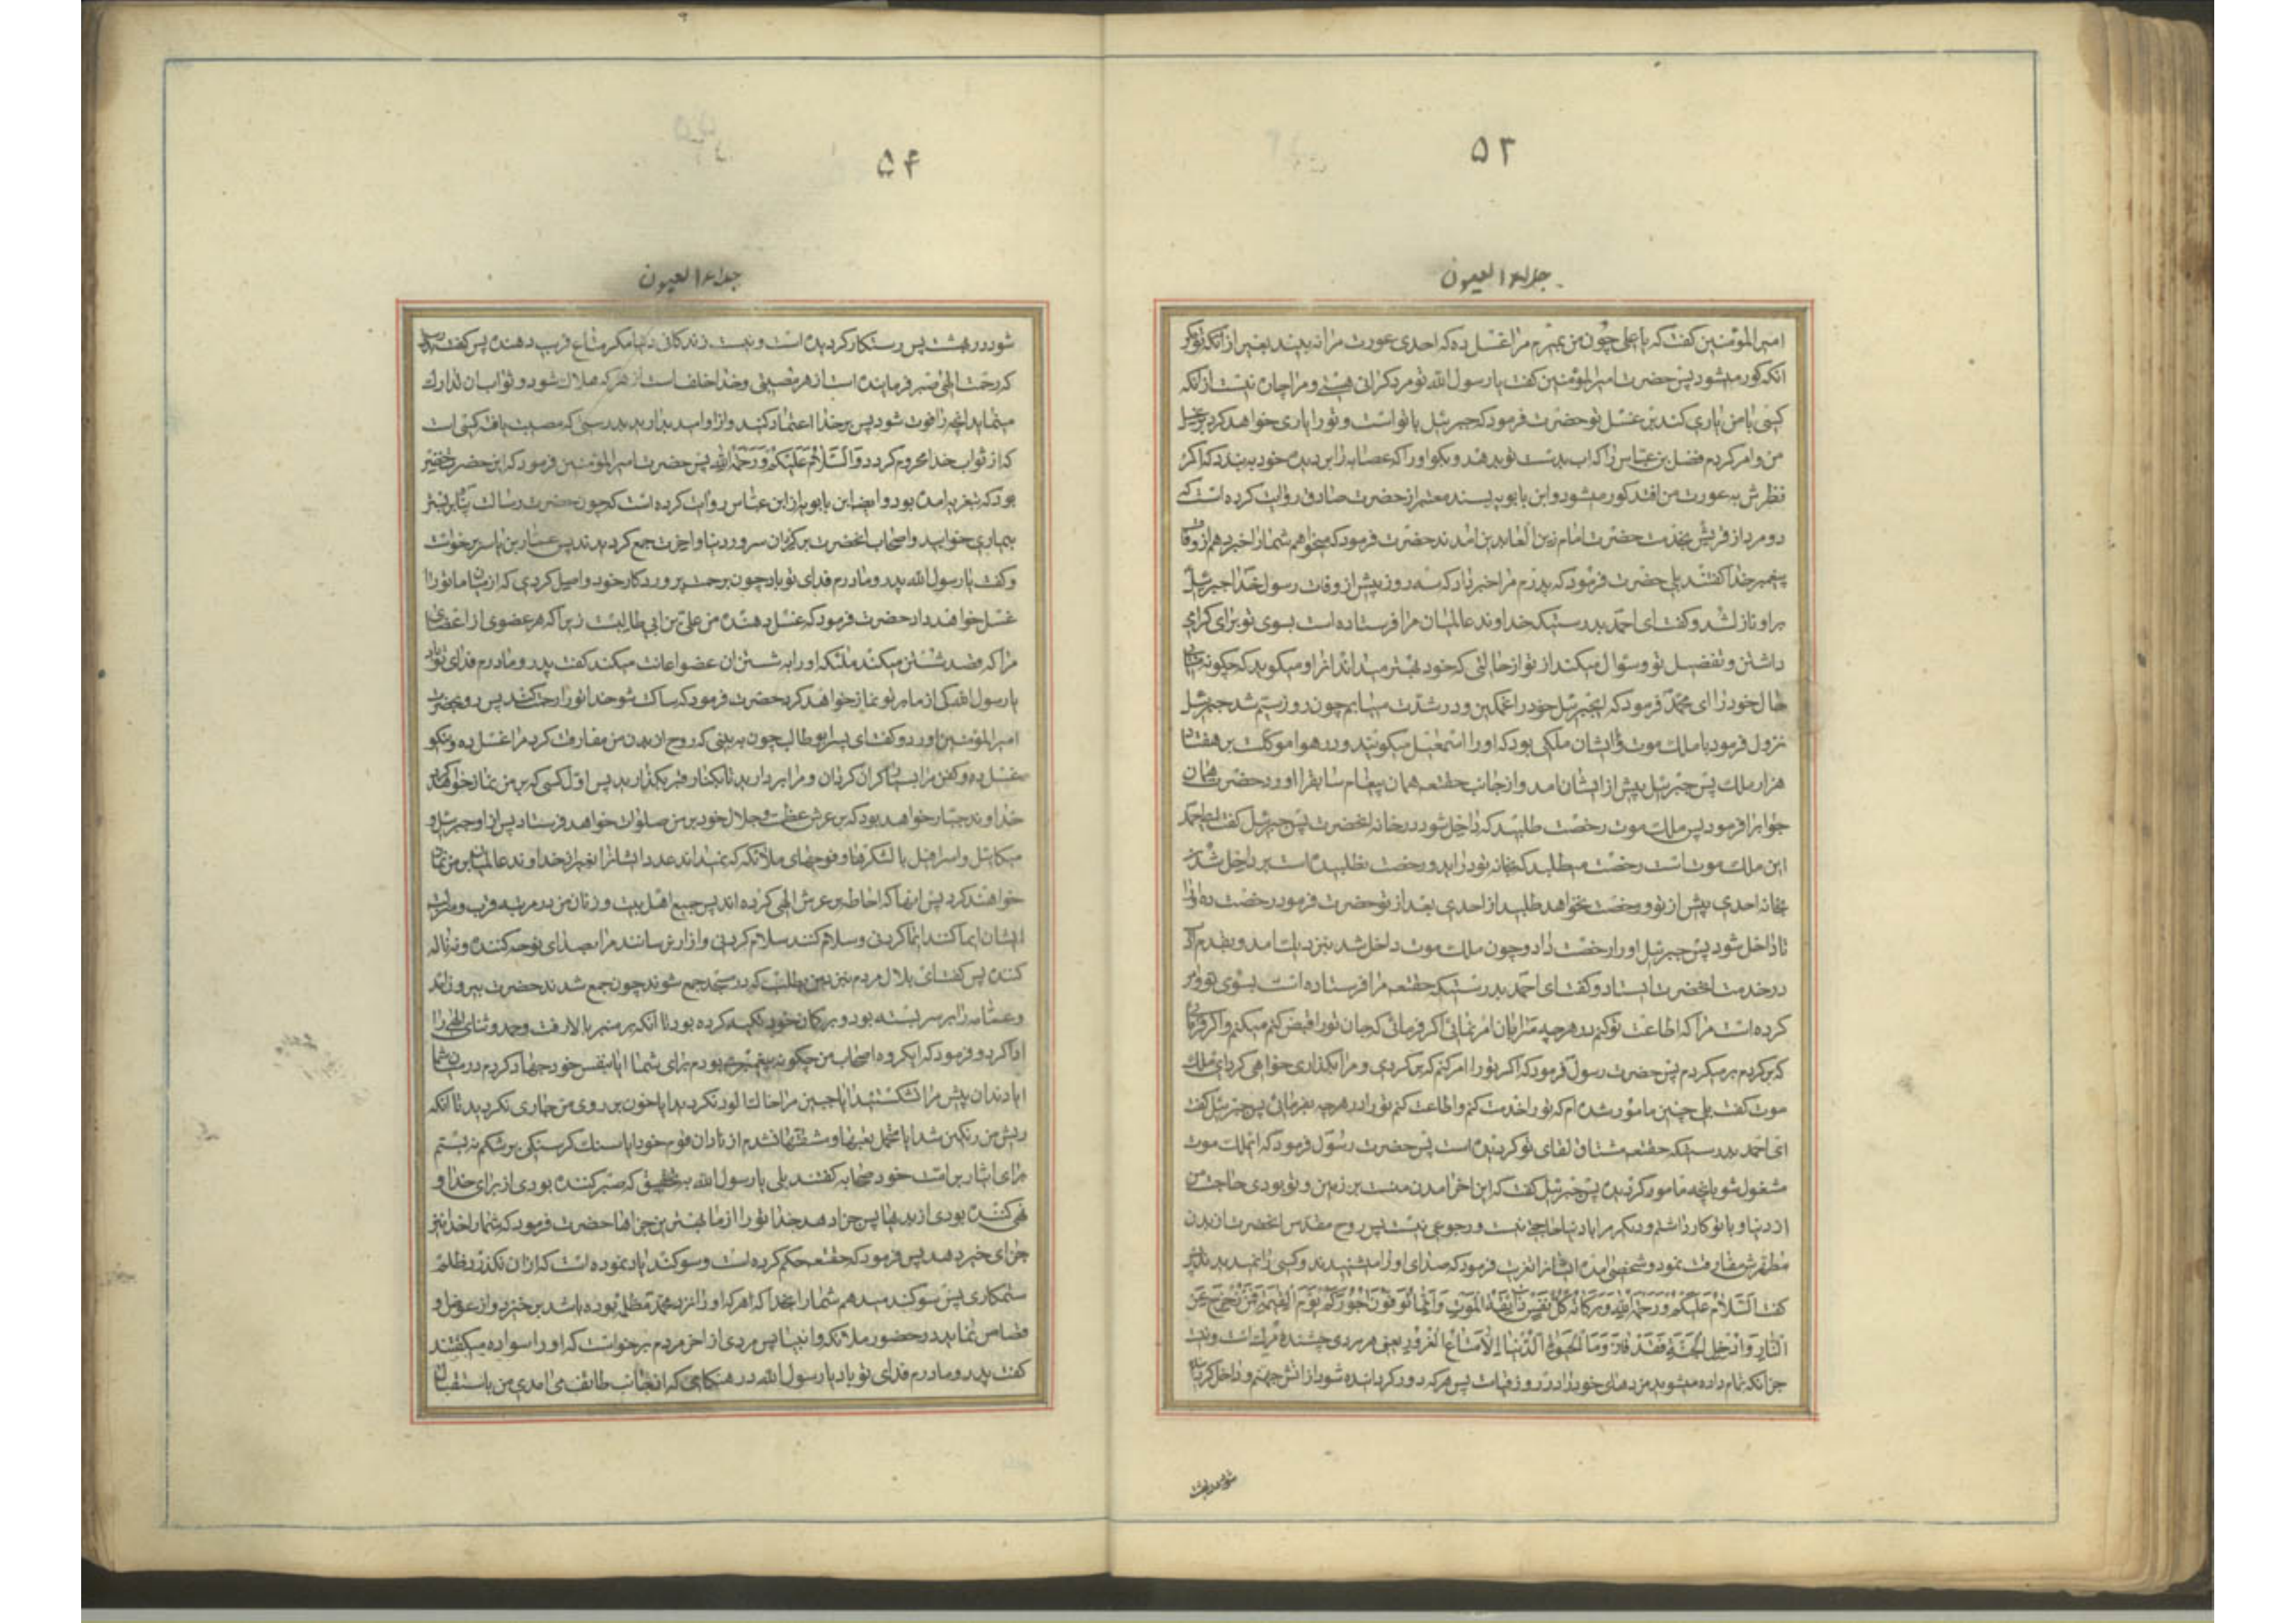 ۵۳
جلاء العیون
امیر المؤمنین کفت که یا علی چون من بمیرم مرا غسل ده که احدی عورت مرا نه بیند بغیر از تو مکر
انکه کور میشود پس حضرت امیر المؤمنین کفت یا رسول الله تو مرد کرانی هستی و مرا چاره نیست از انکه
کسی با من یاری کند بر غسل تو حضرت فرمود که جبرئیل با تو است و تو را یاری خواهد کرد بر غسل
من و امر کردم فضل بن عباس را که اب بدست تو بدهد و بکو او را که عصابه را بر دیده خود به بندد که اکر
نظرش به عورت من افتد کور میشود و ابن بابویه بسند معتبر از حضرت صادق روایت کرده است که
دو مرد از قریش بخدمت حضرت امام زین العابدین امدند حضرت فرمود که میخواهم شما را خبر دهم از وفات
پیغمبر خدا کفتند بلی حضرت فرمود که پدرم مرا خبر داد که سه روز پیش از وفات رسول خدا جبرئیل
بر او نازل شد و کفت ای احمد بدرستیکه خداوند عالمیان مرا فرستاده است بسوی تو برای کرامی
داشتن و تفضیل تو و سؤال میکند از تو از حالتی که خود بهتر میداند انرا و میکوید که چکونه میابی
حال خود را ای محمد فرمود که ایجبرئیل خود را غمکین و در شدت میابم چون روز سیم شد جبرئیل
نزول فرمود با ملک موت و با ایشان ملکی بود که او را اسمعیل میکویند و در هوا موکلست بر هفتاد
هزار ملک پس جبرئیل پیش از ایشان امد و از جانب حقتعه همان پیغام سابق را اورد حضرت همان
جواب را فرمود پس ملک موت رخصت طلبید که داخل شود در خانه انحضرت پس جبرئیل کفت ای احمد
این ملک موت است رخصت میطلبد که بخانه تو در اید و رخصت نطلبیده است بر داخل شدن
بخانه احدی پیش از تو و رخصت نخواهد طلبید از احدی بعد از تو حضرت فرمود رخصت ده او را
تا داخل شود پس جبرئیل او را رخصت داد و چون ملک موت داخل شد بنزدیک امد و بقدم ادب
در خدمت انحضرت ایستاد و کفت ای احمد بدرستیکه حقتعه مرا فرستاده است بسوی تو و امر
کرده است مرا که اطاعت تو کنم در هرچه مرا بان امر نمائی اکر فرمائی که جان تو را قبض کنم میکنم و اکر فرمائی
که برکردم برمیکردم پس حضرت رسول فرمود که اکر تو را امر کنم که برکردی و مرا بکذاری خواهی کرد ای ملک
موت کفت بلی چنین مامور شده ام که تو را خدمت کنم و اطاعت کنم تو را در هرچه بفرمائی پس جبرئیل کفت
ای احمد بدرستیکه حقتعه مشتاق لقای تو کردیده است پس حضرت رسول فرمود که ای ملک موت
مشغول شو بانچه مامور کردیده پس جبرئیل کفت که این اخر امدن منست بر زمین و تو بودی حاجت من
از دنیا و با تو کار داشتم و دیکر مرا با دنیا حاجتی نیست و رجوعی نیست پس روح مقدس انحضرت از بدن
مطهرش مفارقت نمود و شخصی امده ایشانرا تعزیت فرمود که صدای او را میشنیدند و کسی را نمیدیدند پس
کفت السَّلامُ عَلَیکُم وَ رَحمَةُ اللهِ وَ بَرَکاتُهُ کُلُّ نَفسٍ ذائِقَةُ المَوتِ وَ اِنَّما تُوَفَّونَ اُجُورَکُم یَومَ القِیمَةِ فَمَن زُحزِحَ عَنِ
النّارِ وَ اُدخِلَ الجَنَّةَ فَقَد فازَ وَ مَا الحَیوةُ الدُّنیا اِلّا مَتاعُ الغُرُورِ یعنی هر مردی چشندهٔ مرک است و نیست
جز انکه تمام داده میشوید مزدهای خود را در روز قیامت پس هرکه دور کردانیده شود از اتش جهنم و داخل کردانیده
شود در بهشت
۵۴
جلاء العیون
شود در بهشت پس رستکار کردیده است و نیست زندکانی دنیا مکر متاع فریب دهنده پس کفت بدرستی
که رحمت الهی صبر فرماینده است از هر مصیبتی و خدا خلف است از هر که هلاک شود و ثواب ان تدارک
مینماید انچه را فوت شود پس بر خدا اعتماد کنید و از او امید بدارید بدرستی که مصیبت یافته کسی است
که از ثواب خدا محروم کردد وَالسَّلامُ عَلَیکُم وَ رَحمَةُ اللهِ پس حضرت امیر المؤمنین فرمود که این حضرت خضر
بود که بتعزیه امده بود و ایضا ابن بابویه از ابن عباس روایت کرده است که چون حضرت رسالت پناه بر بستر
بیماری خوابید و اصحاب انحضرت بر کرد ان سرور دنیا و اخرت جمع کردیدند پس عمار بن یاسر برخواست
و کفت یا رسول الله پدر و مادرم فدای تو باد چون برحمت پروردکار خود واصل کردی که از میان ما تو را
غسل خواهد داد حضرت فرمود که غسل دهنده من علی بن ابی طالبست زیرا که هر عضوی از اعضای
مرا که قصد شستن میکند ملئکه او را به شستن ان عضو اعانت میکند کفت پدر و مادرم فدای تو باد
یا رسول الله کی از ما بر تو نماز خواهد کرد حضرت فرمود که ساکت شو خدا تو را رحمت کند پس رو بحضرت
امیر المؤمنین اورد و کفت ای پسر ابو طالب چون به بینی که روح از بدن من مفارقت کرد مرا غسل ده و نیکو
غسل بده و کفن مرا بسیار کران کردان و مرا بردارید تا بکنار قبر بکذارید پس اول کسی که بر من نماز خواهد کرد
خداوند جبار خواهد بود که بر عرش عظمت و جلال خود بر من صلوات خواهد فرستاد پس از او جبرئیل و
میکائیل و اسرافیل با لشکرها و فوجهای ملائکه که نمیداند عدد ایشانرا بغیر از خداوند عالمیان بر من نماز
خواهند کرد پس انها که احاطه بر عرش الهی کرده اند پس جمیع اهل بیت و زنان من بد مرتبه قرب و منزلت
ایشان ایما کنند ایما کردنی و سلام کنند سلام کردنی و ازار نرسانند مرا بصدای نوحه کننده و نه ناله
کننده پس کفت ای بلال مردم نیز بمن بطلب که در مسجد جمع شوند چون جمع شدند حضرت بیرون امد
و عمامه را بر سر بسته بود و بر کمان خود تکیه کرده بود تا انکه بر منبر بالا رفت و حمد و ثنای الهی را
ادا کرد و فرمود که ای کروه اصحاب من چکونه پیغمبری بودم برای شما ایا بنفس خود جهاد نکردم در میان شما
ایا دندان پیش مرا نشکستید ایا جبین مرا خاک الود نکردید ایا خون بر روی من جاری نکردید تا انکه
ریش من رنکین شد ایا متحمل تعبها و شدتها نشدم از نادان قوم خود ایا سنک کرسنکی بر شکم نه بستم
برای ایثار بر امت خود صحابه کفتند بلی یا رسول الله به تحقیق که صبر کننده بودی از برای خدا و
نهی کننده بودی از بدیها پس جزا دهد خدا تو را از ما بهترین جزاها حضرت فرمود که شما را خدا نیز
جزای خیر دهد پس فرمود که حقتعه حکم کرده است و سوکند یاد نموده است که از ان نکذرد ظلم
ستمکاری پس سوکند میدهم شما را بخدا که هر که او را نزد محمد مظلمه بوده باشد برخیزد و از عوض و
قصاص نماید در حضور ملائکه و انبیا پس مردی از اخر مردم برخواست که او را سواده میکفتند
کفت پدر و مادرم فدای تو باد یا رسول الله در هنکامی که از جانب طائف می امدی من باستقبال